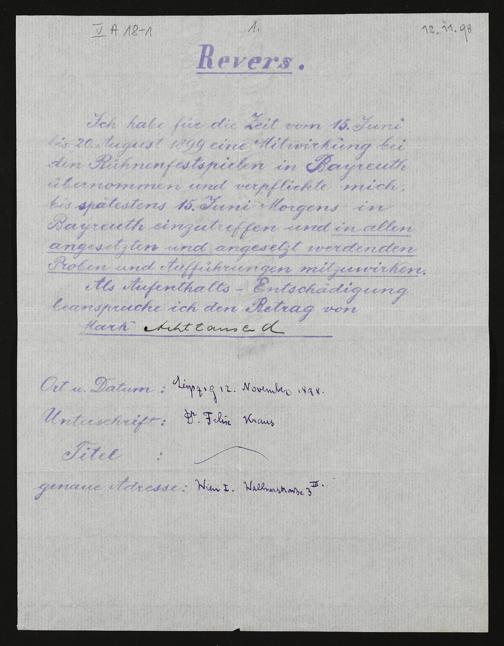 V A 18-1
1.
12.11.98
Revers.
Ich habe für die Zeit vom 15. Juni
bis 20. August 1899 eine Mitwirkung bei
den Bühnenfestspielen in Bayreuth
übernommen und verpflichte mich,
bis spätestens 15. Juni Morgens in
Bayreuth einzutreffen und in allen
angesetzten und angesetzt werdenden
Proben und Aufführungen mitzuwirken.
Als Aufenthalts-Entschädigung
beanspruche ich den Betrag von
Mark Achttausend
Ort u. Datum: Leipzig 12. November 1898.
Unterschrift: Dr. Felix Kraus
Titel :
genaue Adresse: Wien I. Wallnerstrasse 3 III.